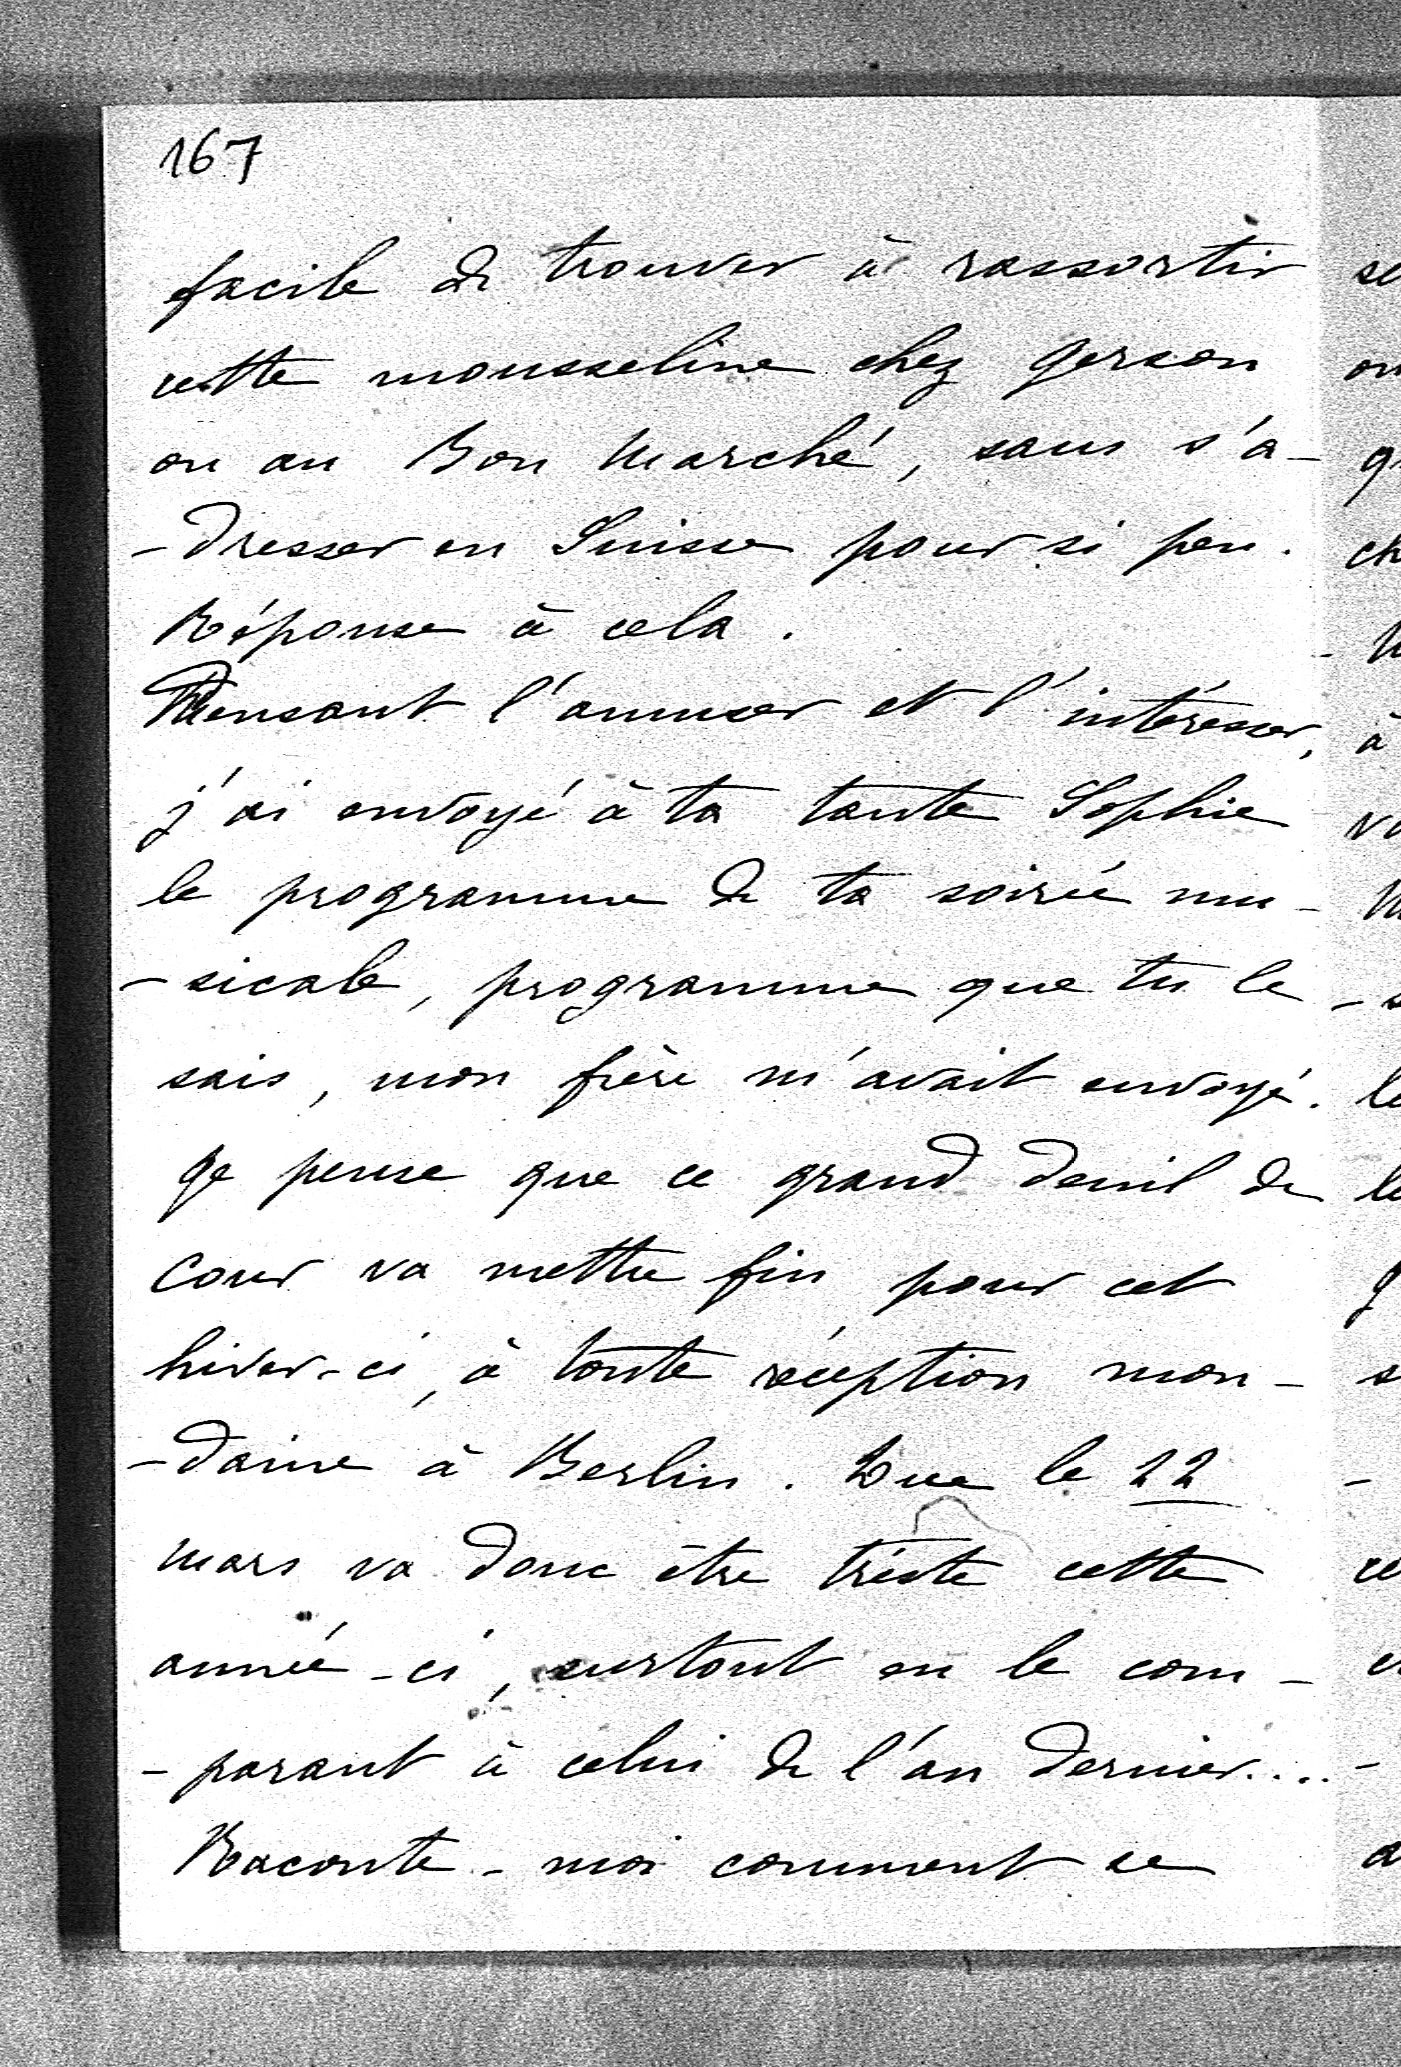 167
facile de trouver à rassortir
cette mousseline chez Gerson
ou au Bon Marché, sans s'a-
-dresser en Suisse pour si peu.
Réponse à cela.
Pensant l'amuser et l'intéresser,
j'ai envoyé à ta tante Sophie
le programme de ta soirée mu-
-sicale, programme que tu le
sais, mon frère m'avait envoyé.
Je pense que ce grand deuil de
Cour va mettre fin pour cet
hiver-ci, à toute réception mon-
-daine à Berlin. Que le 22
mars va donc être triste cette
année-ci, surtout en le com-
-parant à celui de l'an dernier....
Raconte-moi comment se